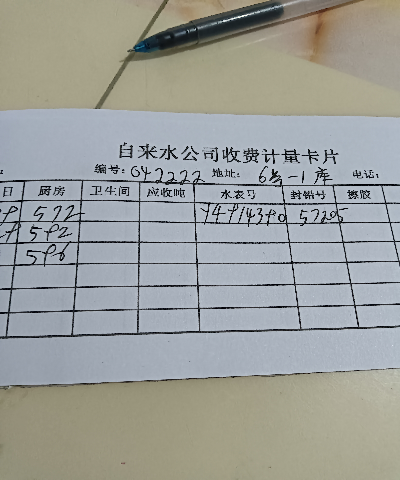 自来水公司收费计量卡片
编号: 042222 地址: 6号-1库 电话:
日 厨房 卫生间 应收吨 水表号 封铅号 擦胶
572 57205
592
596